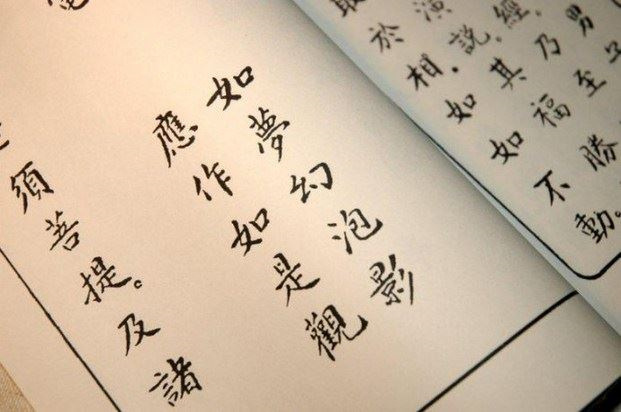 男子
經。乃至
演說。其福勝
取於相。如如不動。
如夢幻泡影
電 應作如是觀
須菩提。及諸